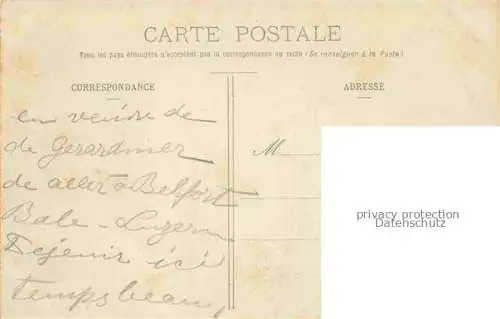 CARTE POSTALE
Tous les pays étrangers n'acceptent pas la correspondance au recto (Se renseigner à la Poste)
CORRESPONDANCE
ADRESSE
en
de
de Gerardmer
de aller à Belfort
Bale - Luzern
ici
temps beau,
M
privacy protection
Datenschutz